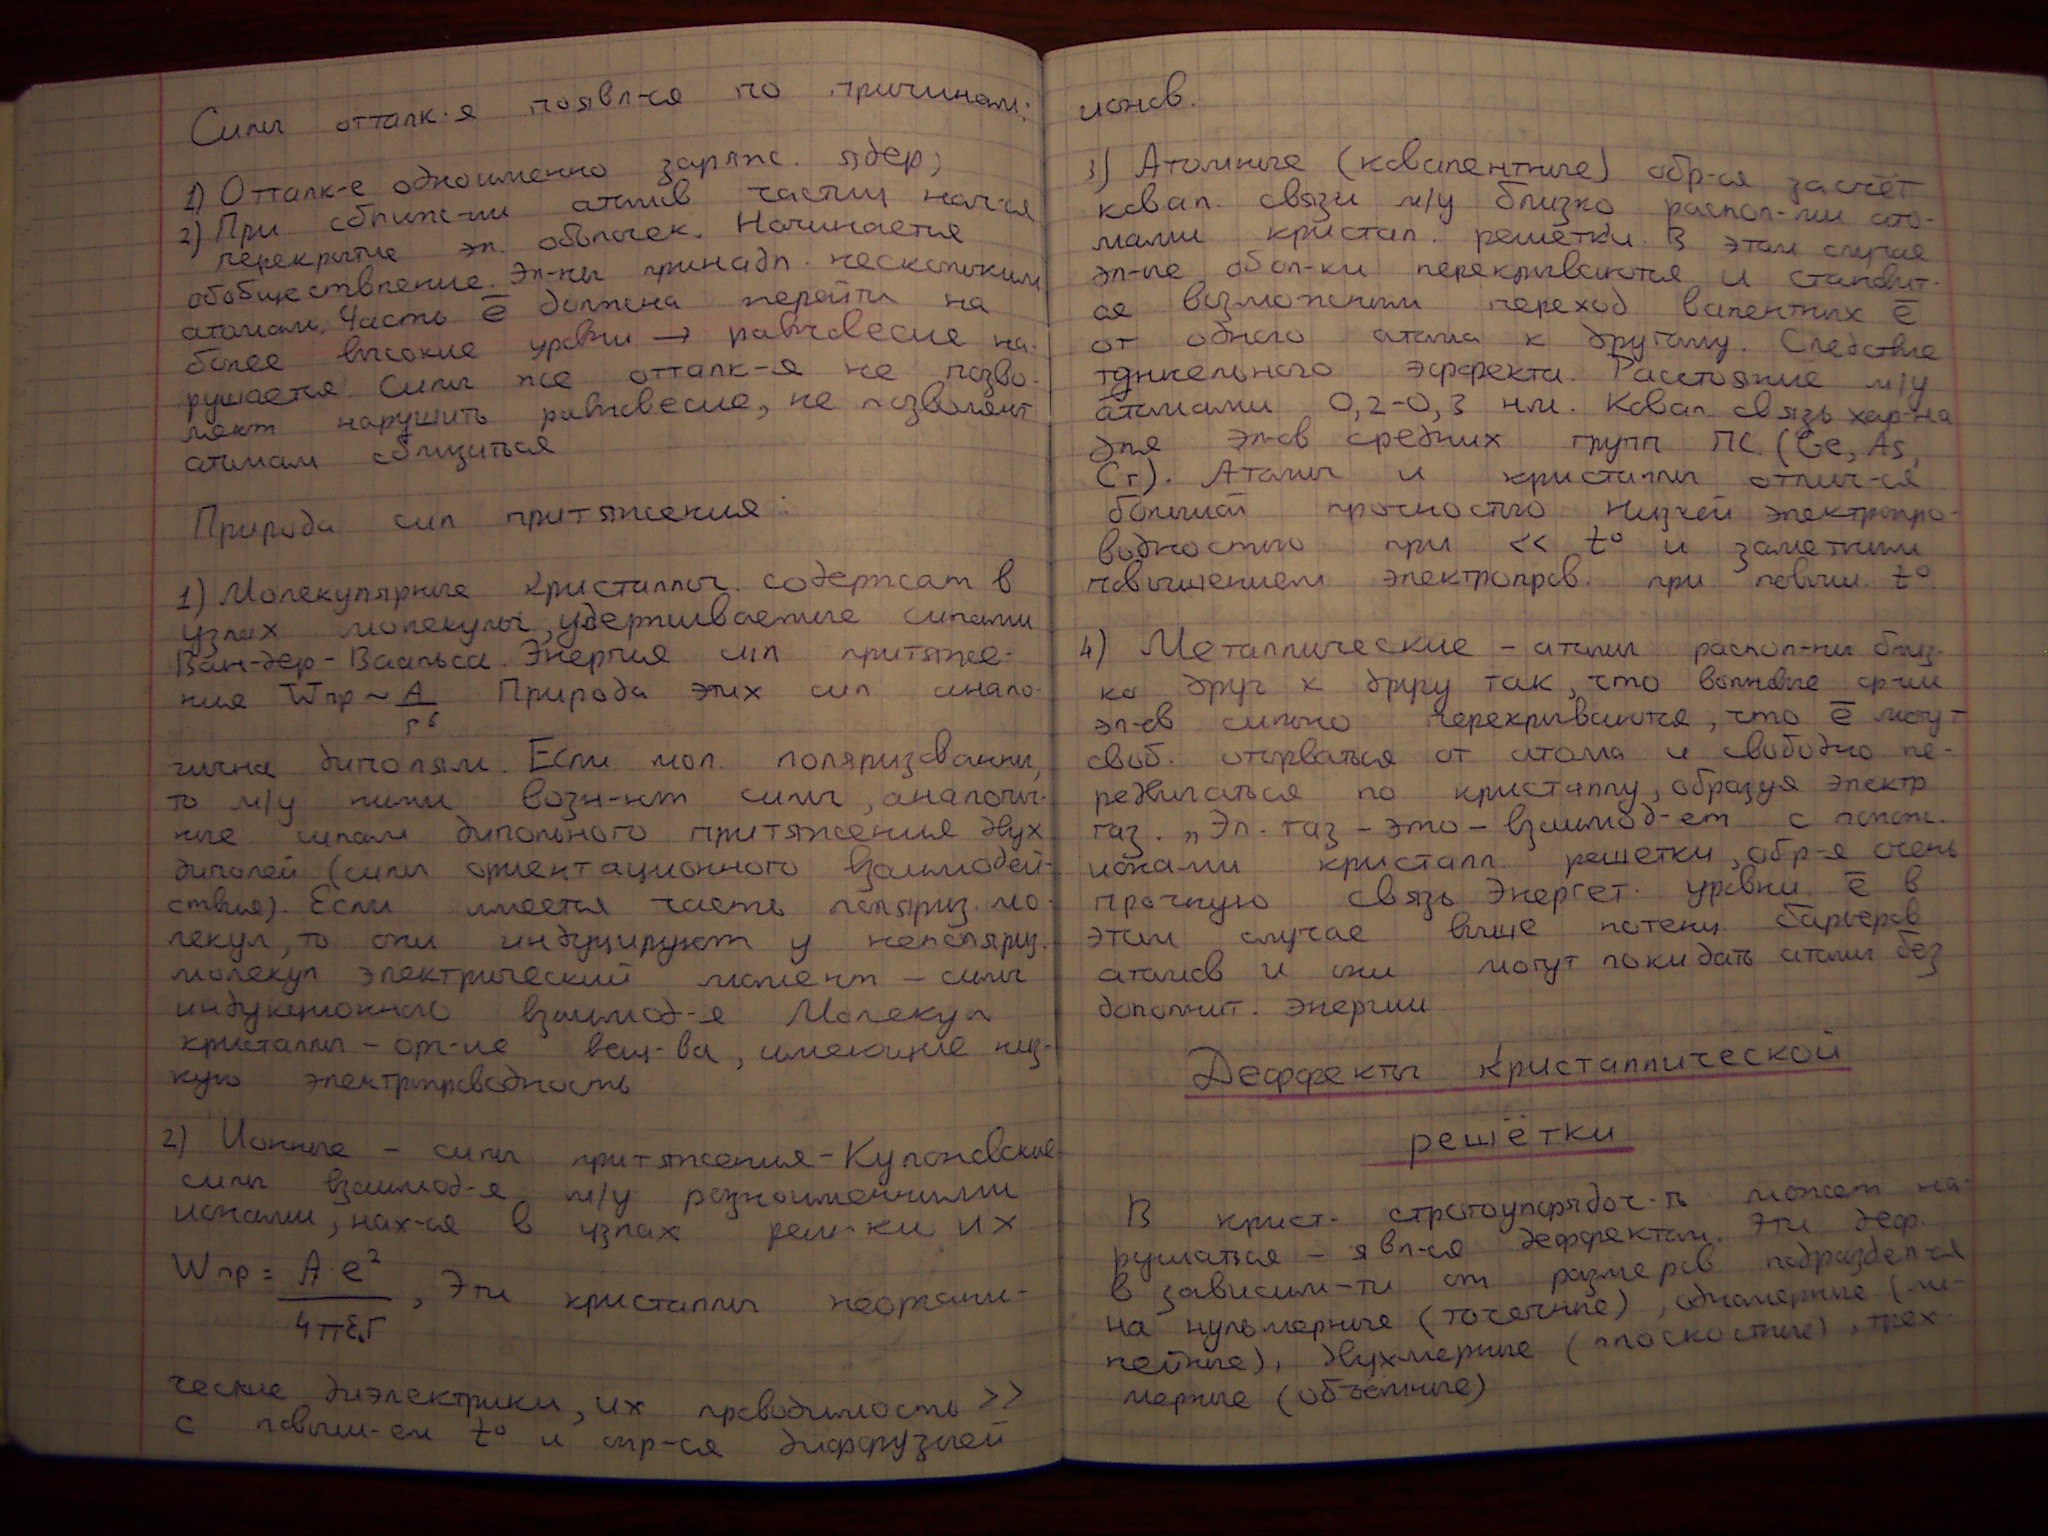 Силы отталк-я появл-ся по причинам:
1) Отталк-е одноименно заряж. ядер;
2) При сближ-ии атомов частиц нач-ся
перекрытие эл. оболочек. Начинается
обобществление. Эл-ны принадл. нескольким
атомам. Часть ē должна перейти на
более высокие уровни → равновесие на-
рушается. Силы же отталк-я не позво-
ляют нарушить равновесие, не позволяют
атомам сблизиться
Природа сил притяжения:
1) Молекулярные кристаллы. содержат в
узлах молекулы, удерживаемые силами
Ван-дер-Ваальса. Энергия сил притяже-
ния Wпр ~ A/r⁶ Природа этих сил анало-
гична диполям. Если мол. поляризованны,
то м/у ними возн-ют силы, аналогич-
ные силам дипольного притяжения двух
диполей (силы ориентационного взаимодей-
ствия). Если имеется часть поляриз. мо-
лекул, то они индуцируют у неполяриз.
молекул электрический момент – силы
индукционного взаимод-я Молекул
кристаллы – орг-ие вещ-ва, имеющие низ-
кую электропроводность
2) Ионные – силы притяжения – Кулоновские
силы взаимод-я м/у разноименными
ионами, нах-ся в узлах реш-ки их
Wпр = A·e²/4πε₀r, Эти кристаллы неоргани-
ческие диэлектрики, их проводимость >>
с повыш-ем t° и опр-ся диффузией
ионов.
3) Атомные (ковалентные) обр-ся засчёт
ковал. связи м/у близко распол-ми ато-
мами кристал. решётки. В этом случае
эл-ые обол-ки перекрываются и становит-
ся возможным переход валентных ē
от одного атома к другому. Следствие
туннельного эффекта. Расстояние м/у
атомами 0,2-0,3 нм. Ковал. связь хар-на
для эл-ов средних групп ПС. (Ge, As,
Cr). Атомы и кристаллы отлич-ся
большой прочностью низкой электропро-
водностью при << t° и заметным
повышением электропров. при повыш. t°
4) Металлические – атомы распол-ны близ-
ко друг к другу так, что волновые ф-ии
эл-ов сильно перекрываются, что ē могут
своб. оторваться от атома и свободно пе-
редвигаться по кристаллу, образуя электр
газ. „Эл. газ – это – взаимод-ет с полож.
ионами кристалл. решетки, обр-я очень
прочную связь Энергет. уровни ē в
этом случае выше потенц. барьеров
атомов и они могут покидать атомы без
дополнит. энергии
Деффекты кристаллической
решётки
В крист. строгоупорядоч-ть может на-
рушаться – явл-ся деффектом. Эти деф.
в зависим-ти от размеров подраздел-ся
на нульмерные (точечные), одномерные (ли-
нейные), двухмерные (плоскостные), трех-
мерные (объёмные)